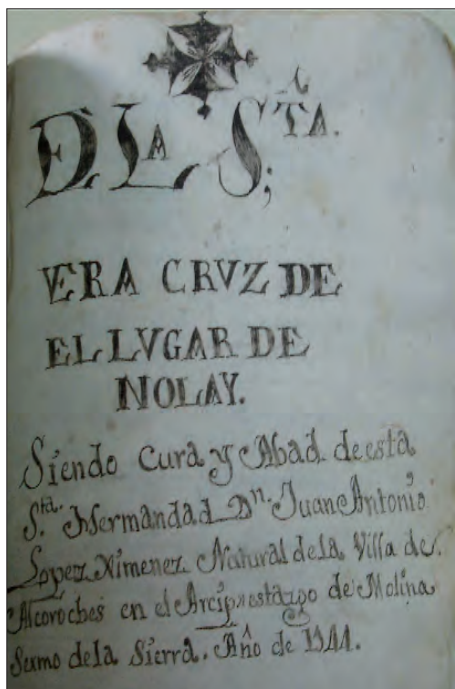 DE LA S.TA.
VERA CRVZ DE
EL LVGAR DE
NOLAY.
Siendo Cura y Abad de esta
S.ta Hermandad Dn. Juan Antonio
Lopez Ximenez Natural de la Villa de
Alcoroches en el Arciprestazgo de Molina
Sexmo de la Sierra. Año de